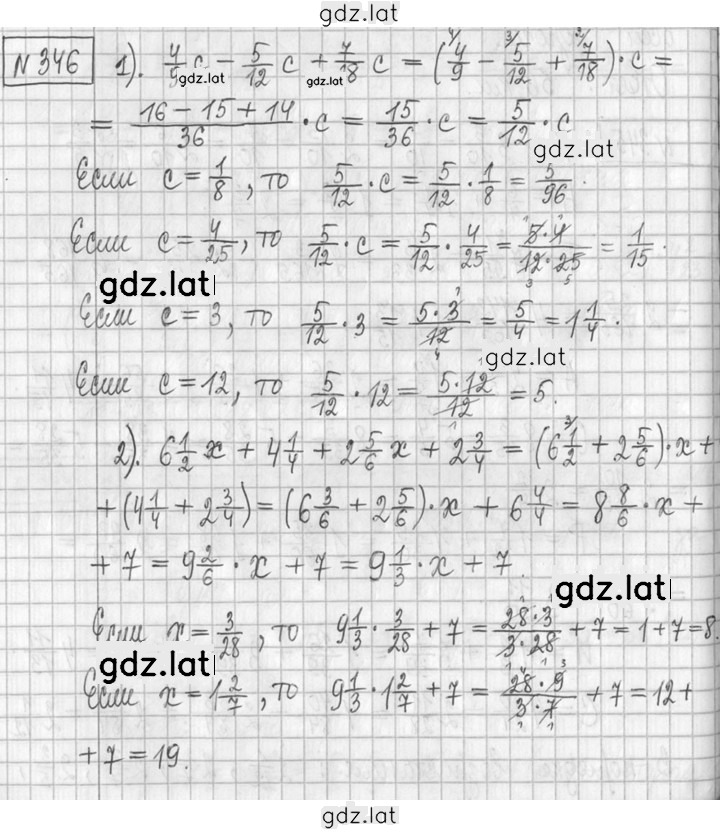 gdz.lat
N 346 1). 4/9 c - 5/12 c + 7/18 c = (4/9 - 5/12 + 7/18) · c =
gdz.lat gdz.lat
= (16 - 15 + 14)/36 · c = 15/36 · c = 5/12 · c
gdz.lat
Если c = 1/8, то 5/12 · c = 5/12 · 1/8 = 5/96.
Если c = 4/25, то 5/12 · c = 5/12 · 4/25 = (5·4)/(12·25) = 1/15.
gdz.lat
Если c = 3, то 5/12 · 3 = (5·3)/12 = 5/4 = 1 1/4.
gdz.lat
Если c = 12, то 5/12 · 12 = (5·12)/12 = 5.
2). 6 1/2 x + 4 1/4 + 2 5/6 x + 2 3/4 = (6 1/2 + 2 5/6) · x +
+ (4 1/4 + 2 3/4) = (6 3/6 + 2 5/6) · x + 6 4/4 = 8 8/6 · x +
+ 7 = 9 2/6 · x + 7 = 9 1/3 · x + 7
gdz.lat
Если x = 3/28, то 9 1/3 · 3/28 + 7 = (28·3)/(3·28) + 7 = 1 + 7 = 8.
gdz.lat
Если x = 1 2/7, то 9 1/3 · 1 2/7 + 7 = (28·9)/(3·7) + 7 = 12 +
+ 7 = 19.
gdz.lat